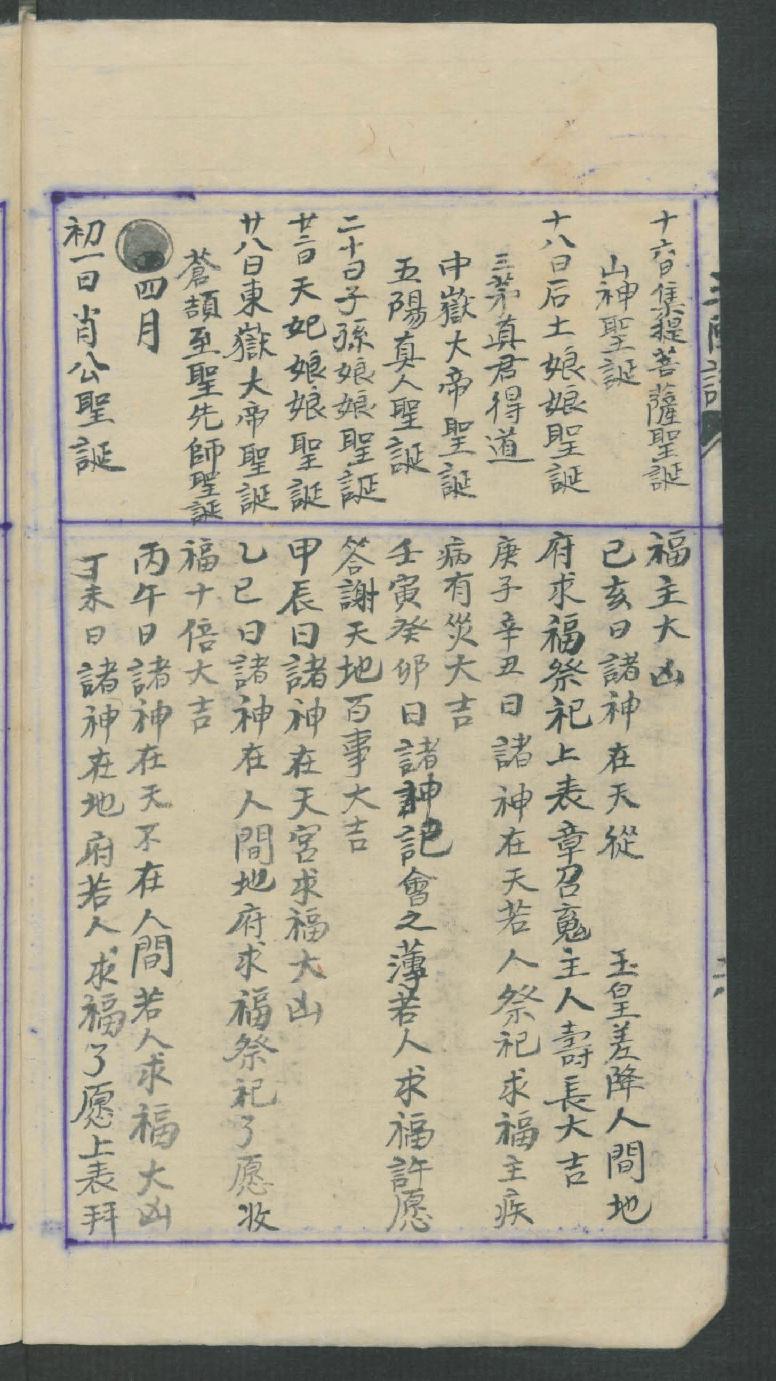 十六日準提菩薩聖誕
山神聖誕
十八日后土娘娘聖誕
三茅真君得道
中嶽大帝聖誕
五陽真人聖誕
二十日子孫娘娘聖誕
廿三日天妃娘娘聖誕
廿八日東嶽大帝聖誕
蒼頡至聖先師聖誕
四月
初一日肖公聖誕
福主大凶
己亥日諸神在天從 玉皇差降人間地
府求福祭祀上表章召䰟主人壽長大吉
庚子辛丑日諸神在天若人祭祀求福主疾
病有災大吉
壬寅癸卯日諸神記會之薄若人求福許愿
答謝天地百事大吉
甲辰日諸神在天宮求福大凶
乙巳日諸神在人間地府求福祭祀了愿收
福十倍大吉
丙午日諸神在天不在人間若人求福大凶
丁未日諸神在地府若人求福了愿上表拜